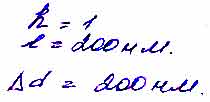 k = 1
l = 200 нм.
Δd = 200 нм.